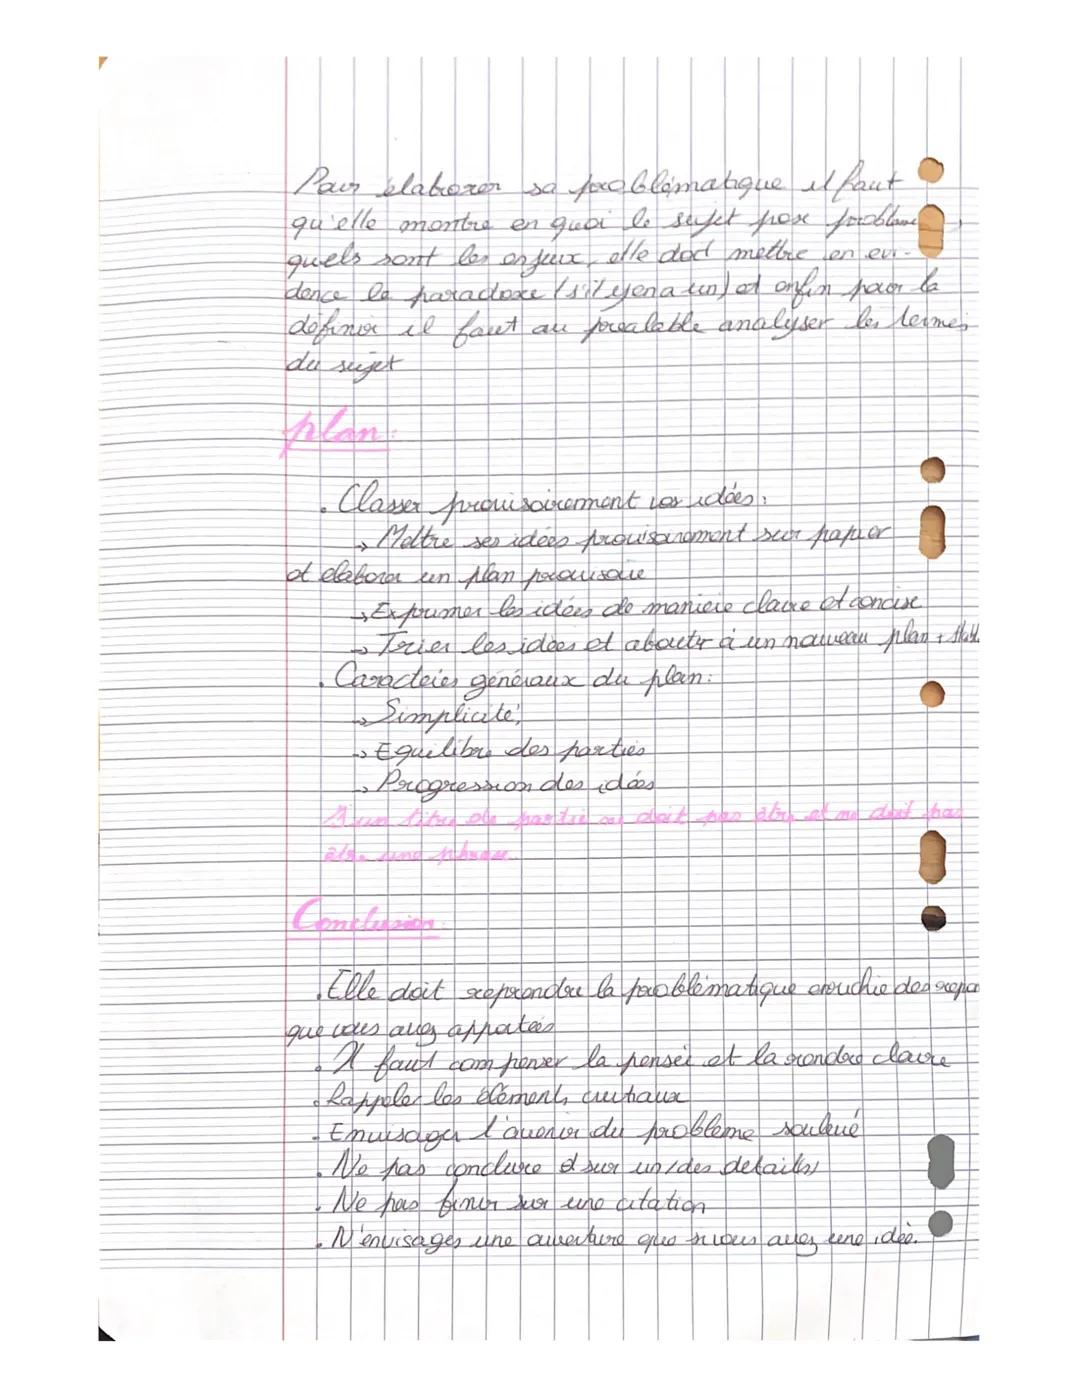 Pour élaborer sa problématique il faut
qu'elle montre en quoi le sujet pose problème,
quels sont les enjeux, elle doit mettre en evi-
dence le paradoxe (s'il y en a un) et enfin pour la
définir il faut au prealable analyser les termes
du sujet
plan:
. Classer provisoirement vos idées:
→ Mettre ses idées provisoirement sur papier
et elaborer un plan provisoire
→ Exprimer les idées de manière claire et concise
→ Trier les idées et aboutir à un nouveau plan +
. Caractères généraux du plan:
→ Simplicité,
→ Equilibre des parties
→ Progression des idées
un titre de partie ne doit pas être et ne doit pas
être une phrase
Conclusion:
. Elle doit reprendre la problématique enrichie des
que vous avez apportées
. Il faut compenser la pensée et la rendre claire
. Rappeler les éléments cruciaux
. Envisager l'avenir du problème soulevé
. Ne pas conclure sur un/des details
. Ne pas finir sur une citation
. N'envisages une ouverture que si vous avez une idée.